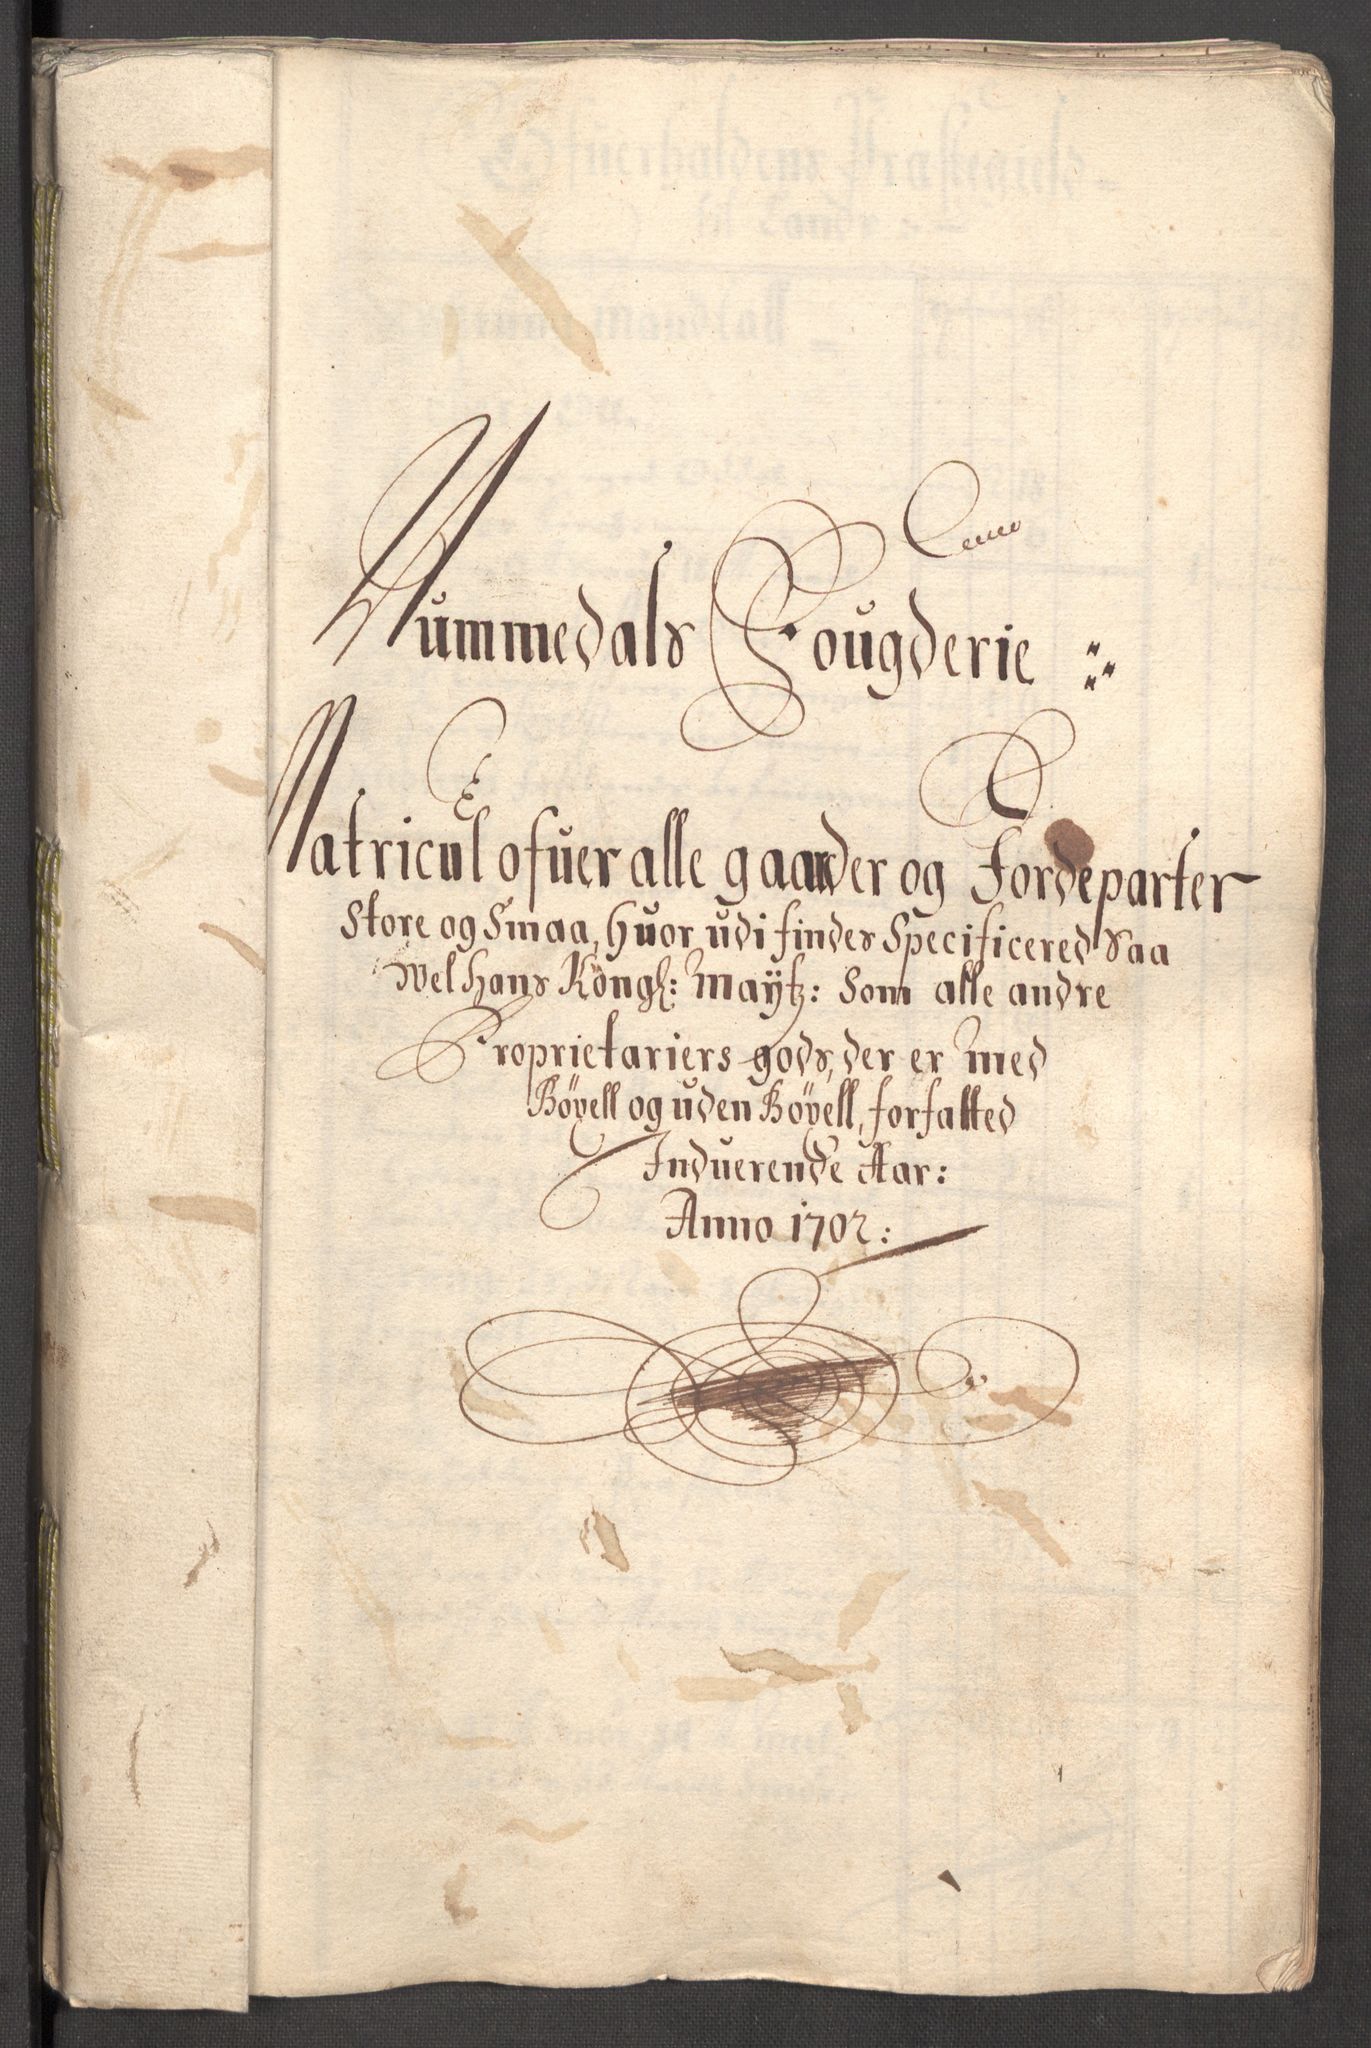 Nummedals Fougderie
Matricul ofuer alle gaarder og Jordeparter
Store og Smaa, huor udi findes Specificered Saa
wel hans Köngl: Maÿtz: Som alle andre
Proprietariers gods, der er med
Böxell og uden Böxell, forfatted
Induerende Aar:
Anno 1702: